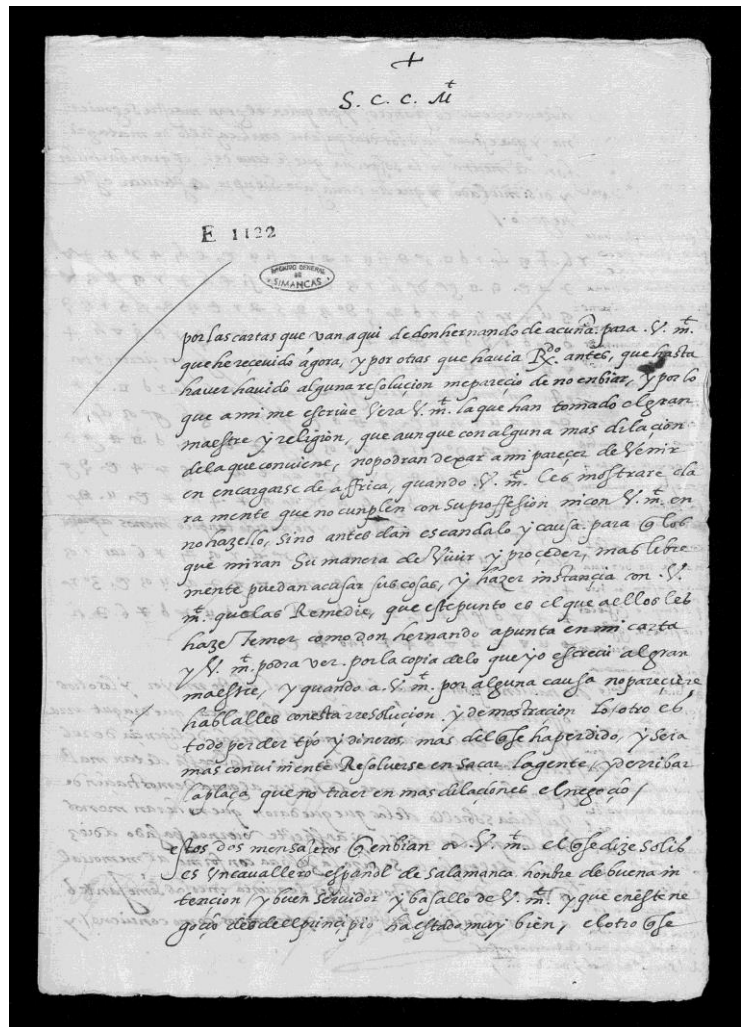 +
S. C. C. M.t
E 1122
ARCHIVO GENERAL
DE
SIMANCAS
por las cartas que van aqui de don hernando de acuña. para .V. m.t
que he recevido agora, y por otras que havia R.do antes, que hasta
haver havido alguna resoluçion me pareçio de no enbiar, y por lo
que a mi me escrive Vera V. m.t la que han tomado el gran
maestre y religion, que aunque con alguna mas dilaçion
de la que conviene, no podran dexar a mi pareçer de Venir
en encargarse de affrica, quando .V. m.t les mostrare cla
ra mente que no cunplen con su proffesion ni con V. m.t en
no hazello, sino antes dan escandalo y causa. para q los
que miran su manera de Vivir y proçeder, mas libre
mente puedan acusar sus cosas, y hazer instançia con .V.
m.t que las Remedie, que este punto es el que a ellos les
haze temer como don hernando apunta en mi carta
y V. m.t podra ver. por la copia de lo que yo escrevi al gran
maestre, y quando a V. m.t por alguna causa no pareçiere
hablalles con esta rresoluçion y demostraçion lo otro es
todo perder tpo y dineros, mas del q se ha perdido, y seria
mas conviniente Resolverse en sacar la gente, y derribar
la plaça, que no traer en mas dilaciones el negoçio /
estos dos mensajeros q enbian a .V. m.t el q se dize Solis
es Un cavallero español de Salamanca honbre de buena in
tencion, y buen Servidor y basallo de V. m.t y que en este ne
goçio desde el principio ha estado muy bien, el otro q se